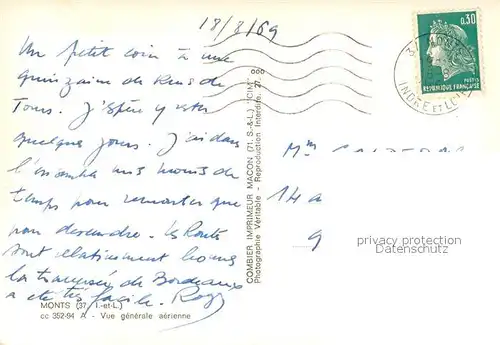 18/8/69
Un petit coin à une
quinzaine de Kms de
Tours. J'espère y rester
quelques jours. J'ai dans
l'ensemble mis moins de
temps pour remonter que
pour descendre. Les routes
sont relativement bonnes
la traversée de Bordeaux
a été très facile.
MONTS (37. I.-et-L.)
cc 352-94 A - Vue générale aérienne
COMBIER IMPRIMEUR MACON (71. S.-&-L.) "CIM"
Photographie Véritable - Reproduction Interdite.
0,30
POSTES
REPUBLIQUE FRANÇAISE
37 MONTS
INDRE ET LOIRE
Mme
14 a
9
protection privacy
Datenschutz